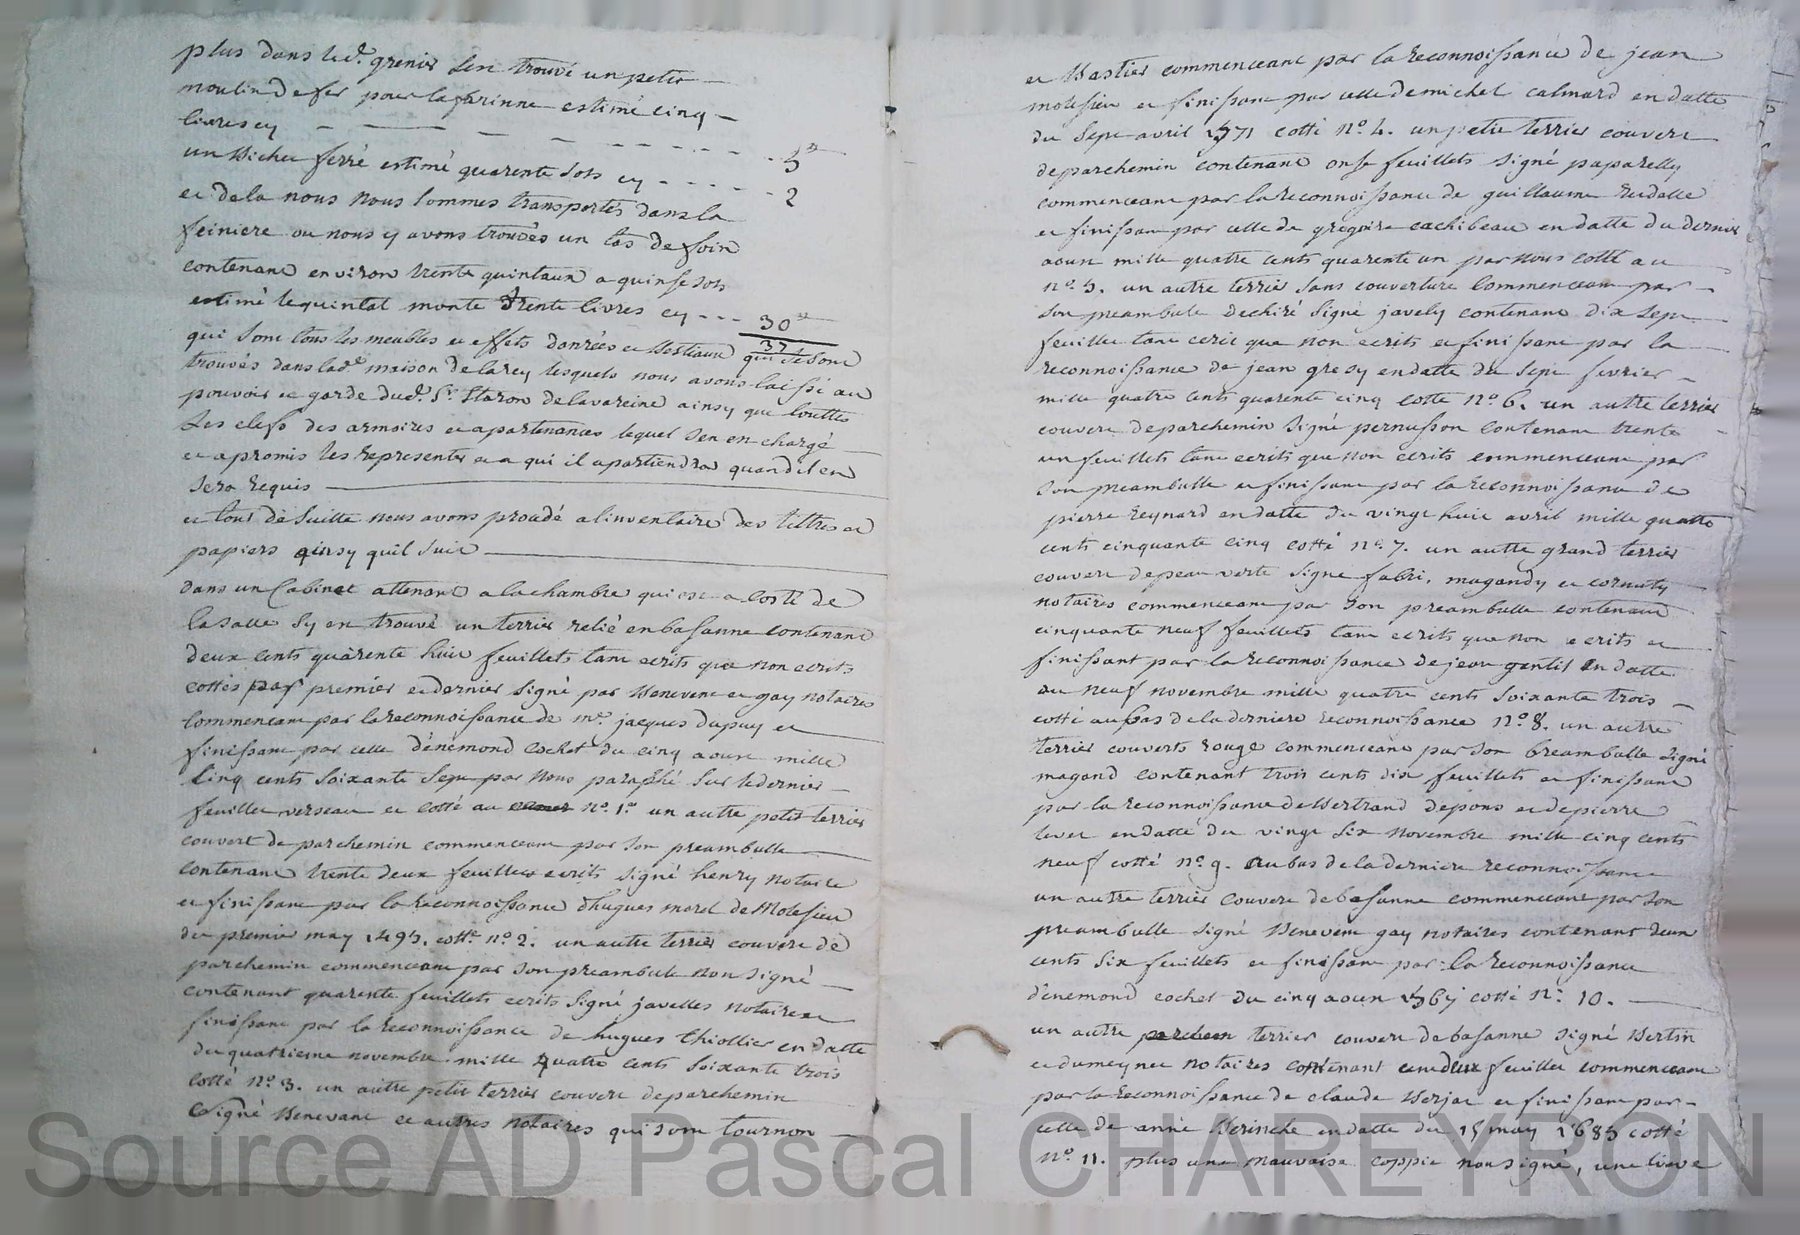 plus dans led. grenier sest trouvé un petit
moulin de fer pour la farinne estimé cinq
livres cy - - - 5
un Bichet ferré estimé quarente sols cy - - - 2
et dela nous nous sommes transportés dans la
feiniere ou nous y avons trouvés un tas de foin
contenant environ trente quintaux a quinse sols
estimé lequintal monte trente livres cy - - - 30
37
qui sont tous les meubles et effets danrées et Bestiaux qui se sont
trouvés dans lade maison de larey lesquels nous avons laissé au
pouvoir et garde dud. Sr. Staron delavareine ainsy que touttes
Les clefs des armoires et apartenances lequel sen en chargé
et a promis les representer et a qui il apartiendra quand il en
sera Requis
et tout de Suitte nous avons procedé alinventaire des tittres et
papiers ainsy quil suit
dans un Cabinet attenant a la chambre qui est a Costé de
la salle sy en trouvé un terrier relié en basanne contenant
deux cents quarente huit feuillets tant ecrits que non ecrits
cottés par premier et dernier signé par Benevent et gay notaires
commencant par la reconnoissance de me. jacques dupuy et
finissant par celle d'énemond cochet du cinq aoust mille
Cinq cents soixante sept par nous paraphé sur le dernier
feuillet verseau et cotté au no. 1o. un autre petit terrier
couvert de parchemin commencant par son preambulle
contenant trente deux feuillets ecrits signé henry notaire
et finissant par la Reconnoissance d'hugues morel de Molesieu
du premier may 1493. cotté no. 2. un autre terrier couvert de
parchemin commencant par son preambule non signé
contenant quarente feuillets ecrits signé javelles notaire et
finissant par la reconnoissance de hugues thiollier en datte
du quatrieme novembre mille quatre cents soixante trois
cotté no. 3. un autre petit terrier couvert de parchemin
signé Benevant et autres notaires qui sont tournon
et Bastier commenceant par la reconnoissance de jean
molesieu et finissant par celle de michel calmard en datte
du sept avril 1571 cotté no. 4. un petit terrier couvert
de parchemin contenant onse feuillets signé paparelly
commenceant par la reconnoissance de guillaume
et finissant par celle de gregoire cachibeau en datte du dernier
aoust mille quatre cents quarente un par nous cotté au
no. 5. un autre terrier sans couverture commenceant par
son preambule dechiré signé javely contenant dix sept
feuillets tant ecrit que non ecrits et finissant par la
reconnoissance de jean gresy en datte du sept fevrier
mille quatre cents quarente cinq cotté no. 6. un autre terrier
couvert de parchemin signé pernusson contenant trente
un feuillets tant ecrits que non ecrits commenceant par
son preambulle et finissant par la reconnoissance de
pierre reynard en datte du vingt huit avril mille quatre
cents cinquante cinq cotté no. 7. un autre grand terrier
couvert de peau verte signé fabri, magandy et cornuty
notaires commenceant par son preambulle contenant
cinquante neuf feuillets tant ecrits que non ecrits et
finissant par la reconnoissance de jean gentil en datte
du neuf novembre mille quatre cents soixante trois
cotté au bas de la derniere reconnoissance no. 8. un autre
terrier couverts rouge commenceant par son breambulle signé
magand contenant trois cents dix feuillets et finissant
par la reconnoissance de Bertrand depons et de pierre
levet en datte du vingt six novembre mille cinq cents
neuf cotté no. 9. au bas de la derniere reconnoissance
un autre terrier couvert de basanne commenceant par son
preambulle signé Benevent gay notaires contenant deux
cents six feuillets et finissant par la reconnoissance
d'énemond cochet du cinq aoust 1567 cotté no. 10.
un autre terrier couvert de basanne signé Bertin
et dumeynet notaires contenant cent deux feuillet commenceant
par la reconnoissance de claude Berjac et finissant par
celle de anne Berinche en datte du 15 may 1685 cotté
no. 11. plus une mauvaise coppie non signé, une lieve
Source AD Pascal CHAREYRON